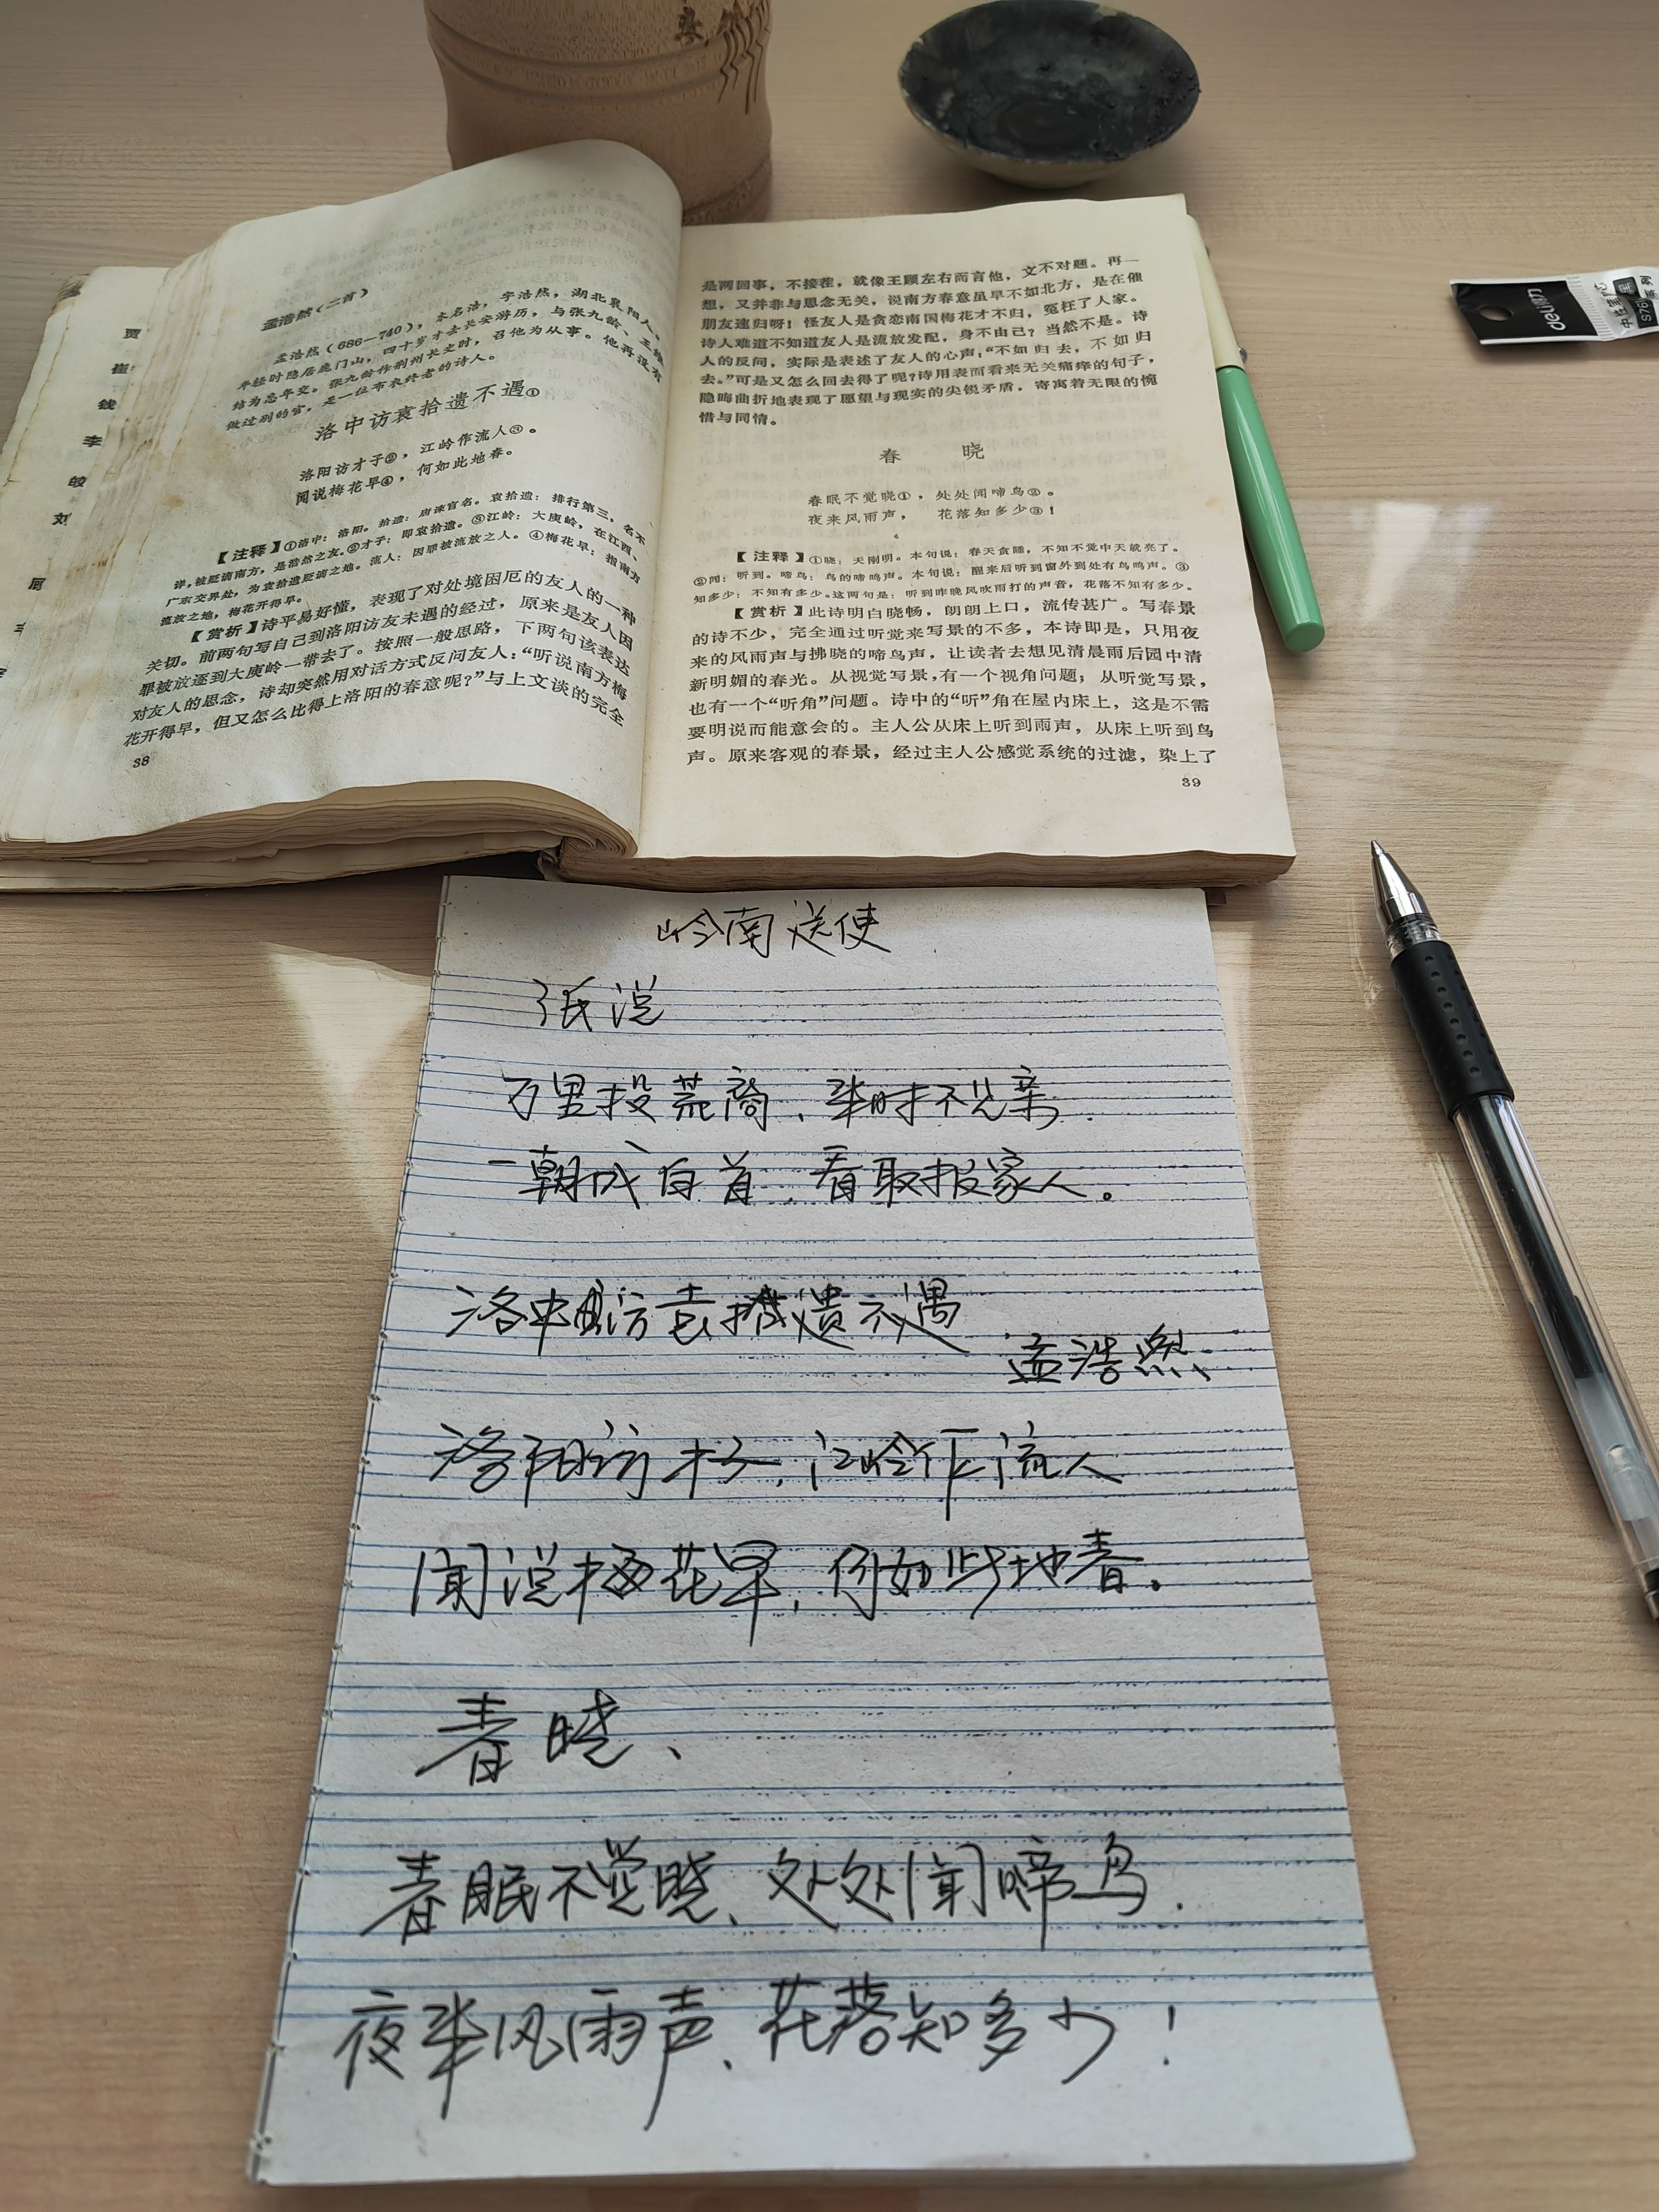 孟浩然（二首）
孟浩然（686—740），本名浩，字浩然，湖北襄阳人。
年轻时隐居鹿门山，四十岁才去长安游历，与张九龄、王维
结为忘年交。张九龄作荆州长史时，召他为从事。他再没有
做过别的官，是一位布衣终老的诗人。
洛中访袁拾遗不遇①
洛阳访才子②，江岭作流人③。
闻说梅花早④，何如此地春。
【注释】①洛中：洛阳。拾遗：唐谏官名。袁拾遗：排行第三，名不
详，被贬谪南方，是浩然之友。②才子：即袁拾遗。③江岭：大庾岭，在江西、
广东交界处，为袁拾遗贬谪之地。流人：因罪被流放之人。④梅花早：指南方
流放之地，梅花开得早。
【赏析】诗平易好懂，表现了对处境困厄的友人的一种
关切。前两句写自己到洛阳访友未遇的经过，原来是友人因
罪被放逐到大庾岭一带去了。按照一般思路，下两句该表达
对友人的思念，诗却突然用对话方式反问友人：“听说南方梅
花开得早，但又怎么比得上洛阳的春意呢？”与上文谈的完全
38
贾
崔
钱
李
皎
刘
是两回事，不接茬，就像王顾左右而言他，文不对题。再一
想，又并非与思念无关，说南方春意虽早不如北方，是在催
朋友速归呀！怪友人是贪恋南国梅花才不归，冤枉了人家。
诗人难道不知道友人是流放发配，身不由己？当然不是。诗
人的反问，实际是表述了友人的心声：“不如归去，不如归
去。”可是又怎么回去得了呢？诗用表面看来无关痛痒的句子，
隐晦曲折地表现了愿望与现实的尖锐矛盾，寄寓着无限的惋
惜与同情。
春 晓
春眠不觉晓①，处处闻啼鸟②。
夜来风雨声， 花落知多少③！
【注释】①晓：天刚明。本句说：春天贪睡，不知不觉中天就亮了。
②闻：听到。啼鸟：鸟的啼鸣声。本句说：醒来后听到窗外到处有鸟鸣声。③
知多少：不知有多少。这两句是：听到昨晚风吹雨打的声音，花落不知有多少。
【赏析】此诗明白晓畅，朗朗上口，流传甚广。写春景
的诗不少，完全通过听觉来写景的不多，本诗即是，只用夜
来的风雨声与拂晓的啼鸟声，让读者去想见清晨雨后园中清
新明媚的春光。从视觉写景，有一个视角问题；从听觉写景，
也有一个“听角”问题。诗中的“听”角在屋内床上，这是不需
要明说而能意会的。主人公从床上听到雨声，从床上听到鸟
声。原来客观的春景，经过主人公感觉系统的过滤，染上了
39
deli
岭南送使
张说
万里投荒裔、来时不见亲.
一朝成白首、看取报家人。
洛中访袁拾遗不遇
孟浩然
洛阳访才子，江岭作流人
闻说梅花早，何如此地春。
春晓、
春眠不觉晓、处处闻啼鸟.
夜来风雨声、花落知多少！